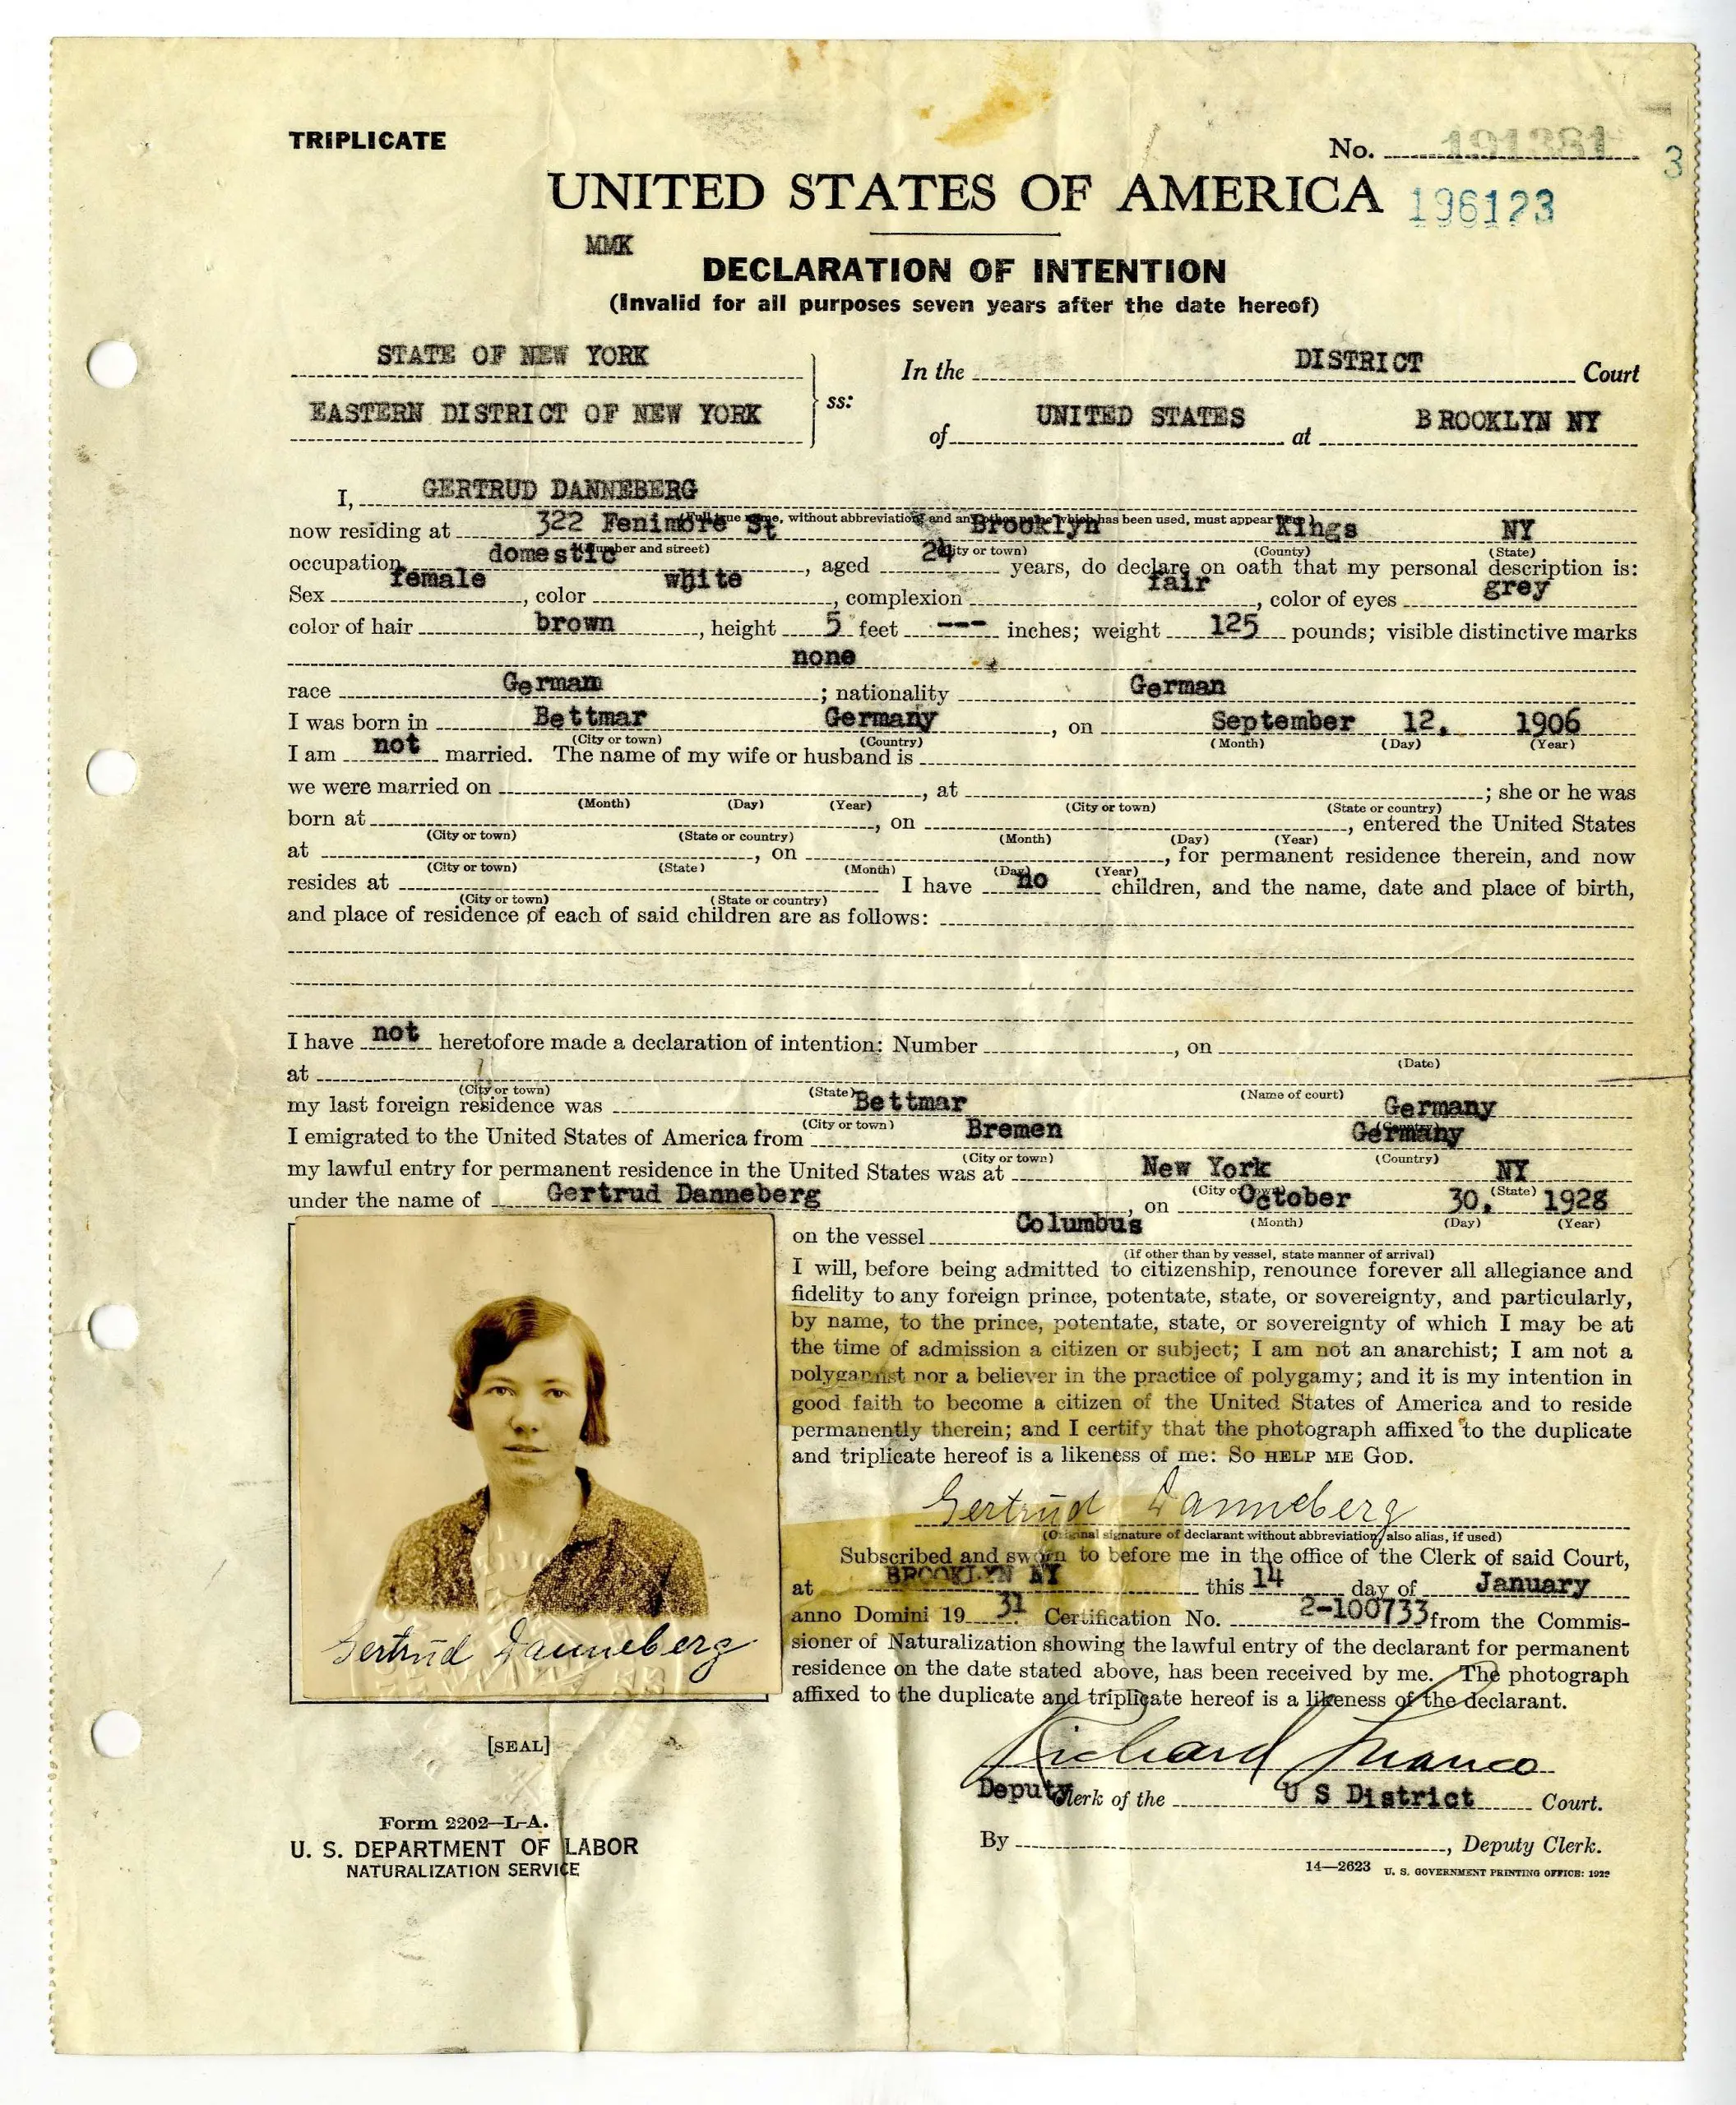 TRIPLICATE
No. 191381 3
UNITED STATES OF AMERICA 196123
MMK
DECLARATION OF INTENTION
(Invalid for all purposes seven years after the date hereof)
STATE OF NEW YORK
In the DISTRICT Court
EASTERN DISTRICT OF NEW YORK ss:
of UNITED STATES at BROOKLYN NY
I, GERTRUD DANNEBERG
(Full true name, without abbreviation, and any other name which has been used, must appear
now residing at 322 Fenimore St Brooklyn Kings NY
(Number and street) (City or town) (County) (State)
occupation domestic, aged 24 years, do declare on oath that my personal description is:
Sex female, color white, complexion fair, color of eyes grey
color of hair brown, height 5 feet --- inches; weight 125 pounds; visible distinctive marks
none
race German; nationality German
I was born in Bettmar Germany, on September 12. 1906
(City or town) (Country) (Month) (Day) (Year)
I am not married. The name of my wife or husband is
we were married on, at; she or he was
(Month) (Day) (Year) (City or town) (State or country)
born at, on, entered the United States
(City or town) (State or country) (Month) (Day) (Year)
at, on, for permanent residence therein, and now
(City or town) (State) (Month) (Day) (Year)
resides at I have no children, and the name, date and place of birth,
(City or town) (State or country)
and place of residence of each of said children are as follows:
I have not heretofore made a declaration of intention: Number, on
(Date)
at
(City or town) (State) (Name of court)
my last foreign residence was Bettmar Germany
(City or town) (Country)
I emigrated to the United States of America from Bremen Germany
(City or town) (Country)
my lawful entry for permanent residence in the United States was at New York NY
(City or town) (State)
under the name of Gertrud Danneberg, on October 30. 1928
(Month) (Day) (Year)
on the vessel Columbus
(If other than by vessel, state manner of arrival)
I will, before being admitted to citizenship, renounce forever all allegiance and
fidelity to any foreign prince, potentate, state, or sovereignty, and particularly,
by name, to the prince, potentate, state, or sovereignty of which I may be at
the time of admission a citizen or subject; I am not an anarchist; I am not a
polygamist nor a believer in the practice of polygamy; and it is my intention in
good faith to become a citizen of the United States of America and to reside
permanently therein; and I certify that the photograph affixed to the duplicate
and triplicate hereof is a likeness of me: SO HELP ME GOD.
Gertrud Danneberg
(Original signature of declarant without abbreviation, also alias, if used)
Subscribed and sworn to before me in the office of the Clerk of said Court,
at BROOKLYN NY this 14 day of January
anno Domini 19 31 Certification No. 2-100733 from the Commis-
sioner of Naturalization showing the lawful entry of the declarant for permanent
residence on the date stated above, has been received by me. The photograph
affixed to the duplicate and triplicate hereof is a likeness of the declarant.
Gertrud Danneberg
[SEAL]
Richard Franco
Deputy Clerk of the U S District Court.
By, Deputy Clerk.
Form 2202—L-A.
U. S. DEPARTMENT OF LABOR
NATURALIZATION SERVICE
14—2623 U. S. GOVERNMENT PRINTING OFFICE: 1929